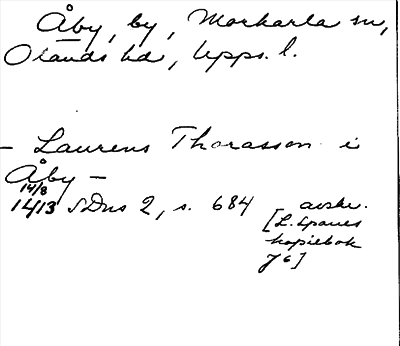 Åby, by, Morkarla sn,
Olands hd, Upps. l.
- Laurens Thorasson i
Åby -
14/8
1413 SDns 2, s. 684 avskr.
[L. Sparres
kopiebok
76]